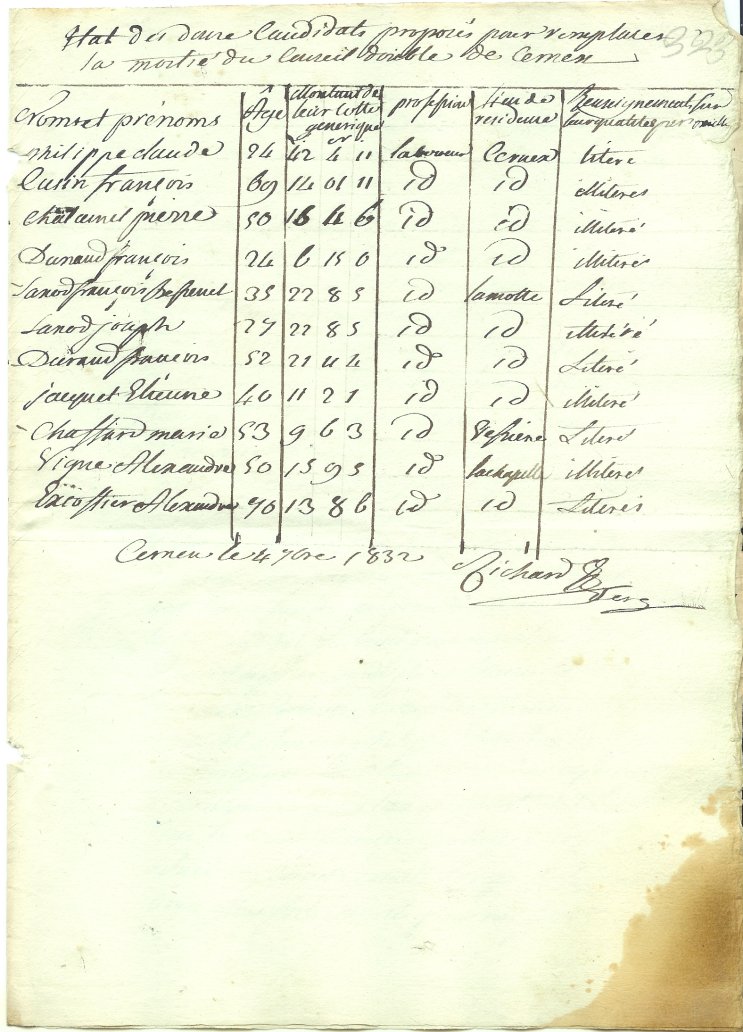 323
Etat des douze Candidats proposés pour remplacer
la moitié du Conseil double de Cernex
Noms et prénoms Age Montant de leur Cotte generique profession lieu de residence Renseignements sur leurs qualités personnelles
philippe claude 24 42 4 11 laboureur Cernex literé
Cusin françois 69 14 01 11 id id illiterés
Chatainet pierre 50 16 4 6 id id illiteré
Dunand francois 24 6 15 0 id id illiteré
Sanod françois 35 22 8 5 id lamotte Literé
Sanod joseph 27 22 8 5 id id illiteré
Durand francois 52 21 11 4 id id Literé
jacquet Etienne 40 11 2 1 id id illiteré
Chaffard marie 53 9 6 3 id Literé
Vigne Alexandre 50 15 9 5 id lachapelle illiteres
Excoffier Alexandre 70 13 8 6 id id Literés
Cernex le 4 7bre 1832 Richard